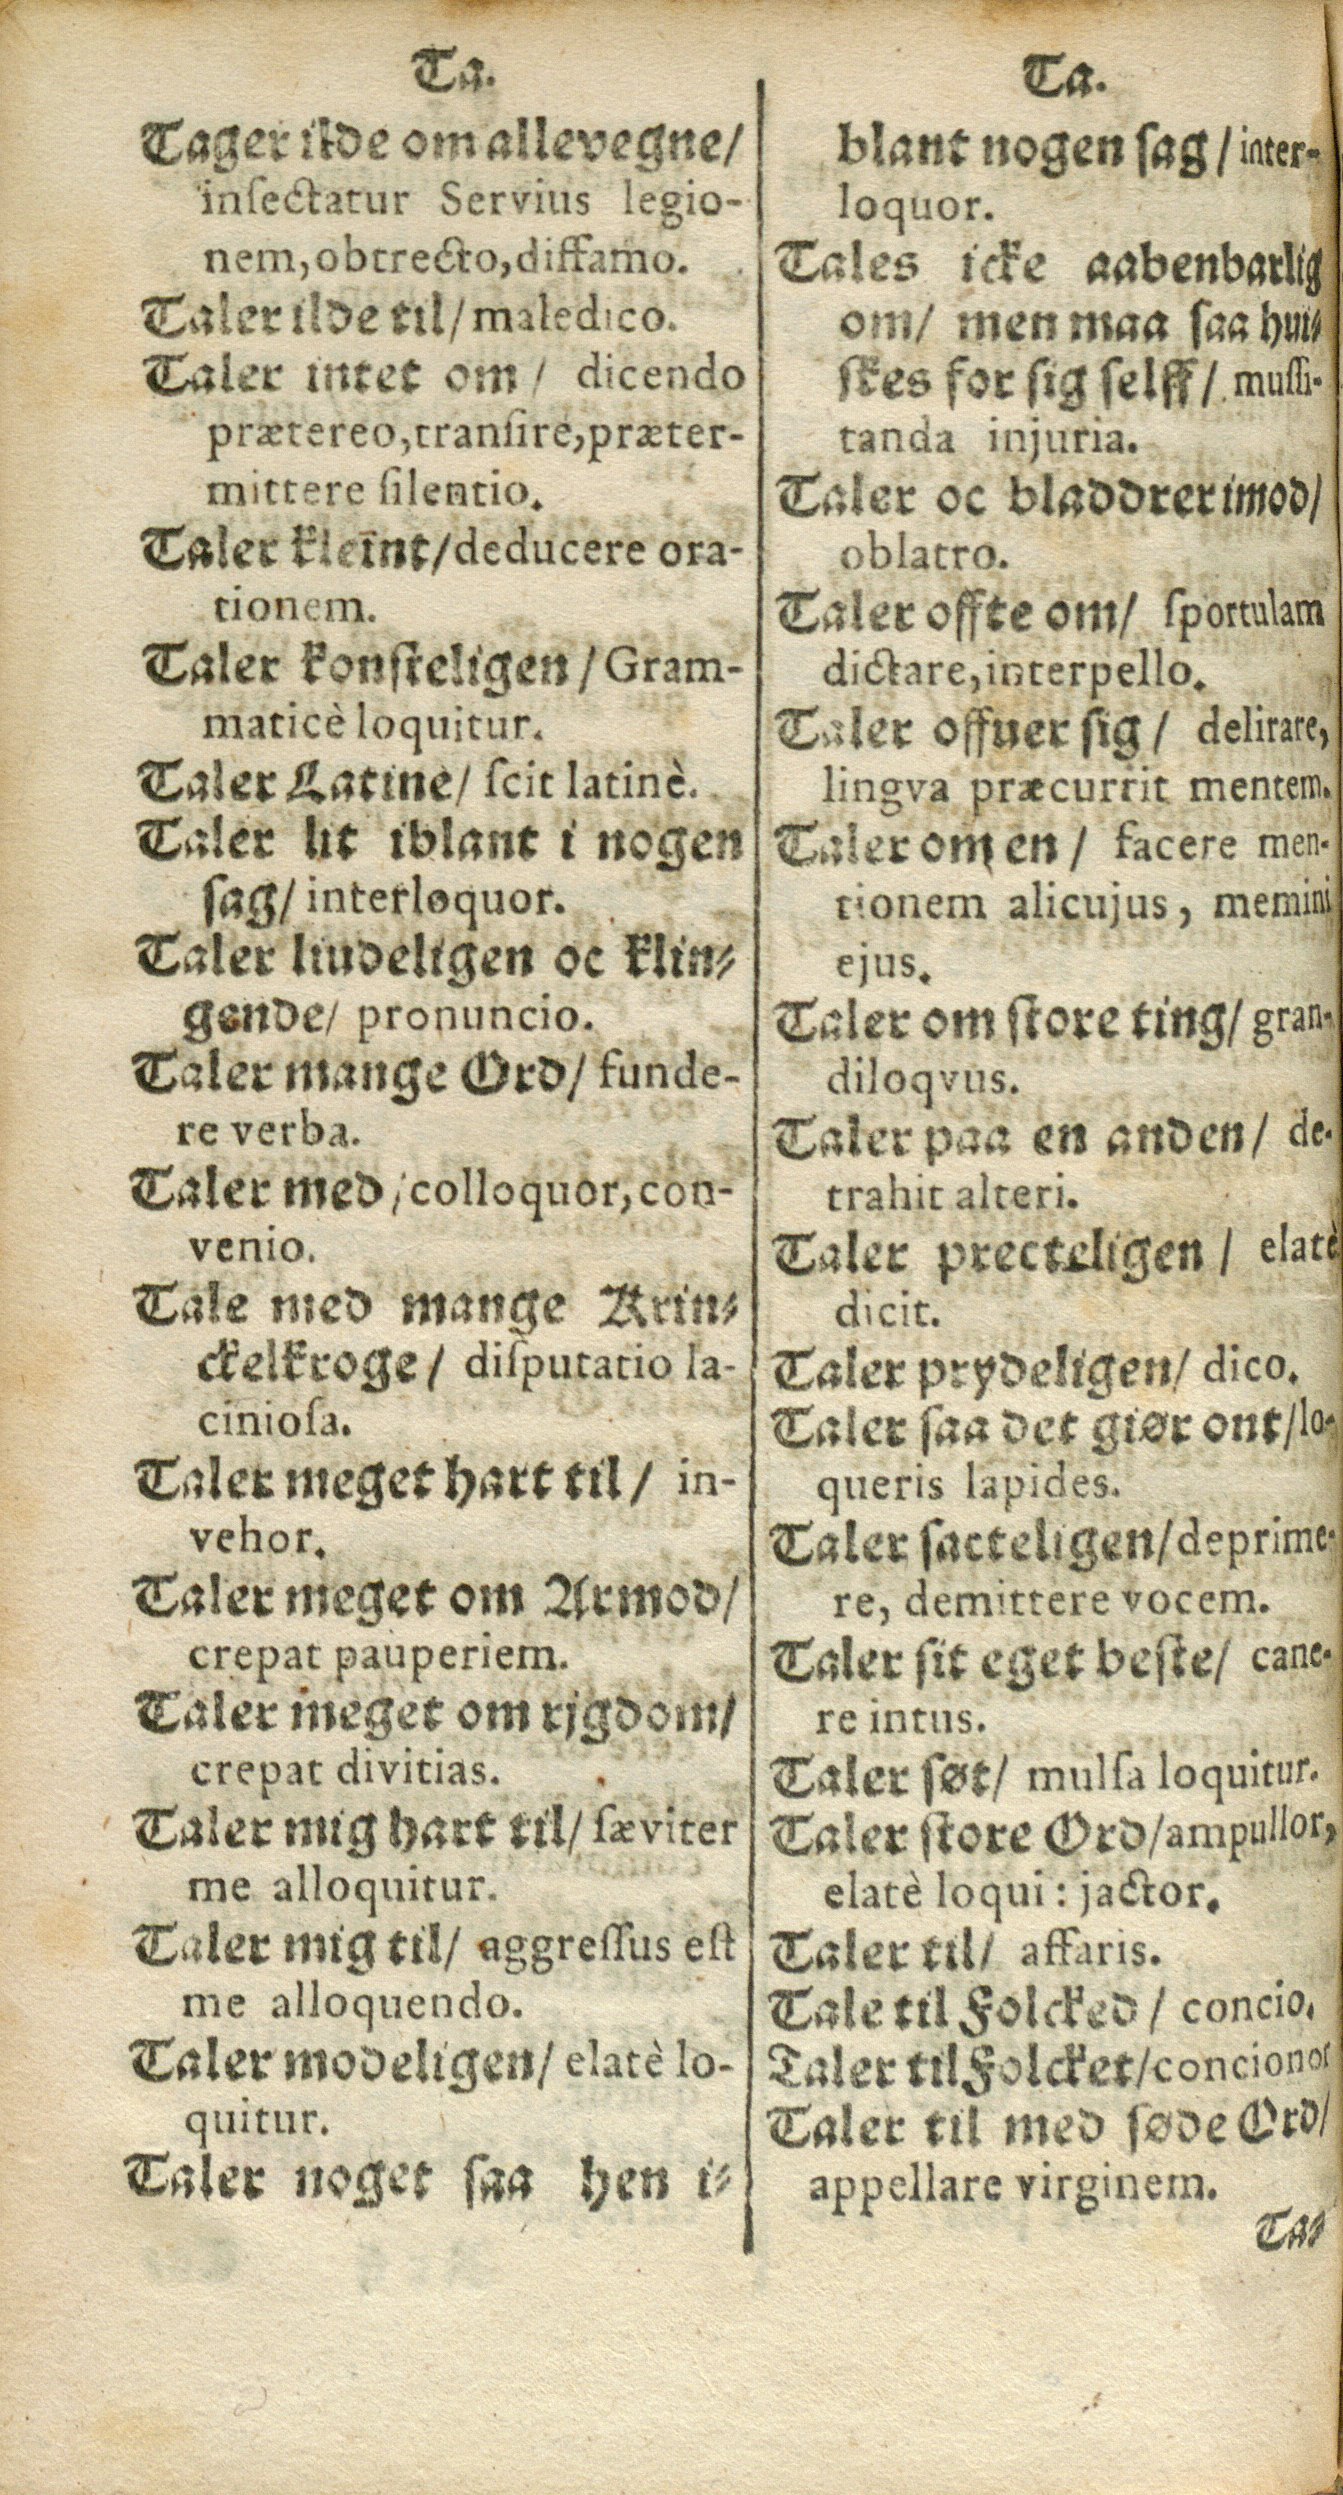 Ta.
Tager ilde om allevegne/
inſectatur Servius legio-
nem, obtrecto, diffamo.
Taler ilde til/ maledico.
Taler intet om / dicendo
prætereo, tranſire, præter-
mittere ſilentio.
Taler kleint/ deducere ora-
tionem.
Taler konſteligen / Gram-
maticè loquitur.
Taler Latine/ ſcit latinè.
Taler lit iblant i nogen
ſag/ interloquor.
Taler liudeligen oc klin-
gende/ pronuncio.
Taler mange Ord/ funde-
re verba.
Taler med / colloquor, con-
venio.
Tale med mange Krin-
ckelkroge / diſputatio la-
cinioſa.
Taler meget hart til / in-
vehor.
Taler meget om Armod/
crepat pauperiem.
Taler meget om rjgdom/
crepat divitias.
Taler mig hart til/ ſæviter
me alloquitur.
Taler mig til/ aggreſſus eſt
me alloquendo.
Taler modeligen/ elatè lo-
quitur.
Taler noget ſaa hen i-
Ta.
blant nogen ſag / inter-
loquor.
Tales icke aabenbarlig
om/ men maa ſaa hui-
ſkes for ſig ſelff / muſſi-
tanda injuria.
Taler oc bladdrer imod/
oblatro.
Taler offte om/ ſportulam
dictare, interpello.
Taler offuer ſig / delirare,
lingva præcurrit mentem.
Taler om en / facere men-
tionem alicujus, memini
ejus.
Taler om ſtore ting/ gran-
diloqvus.
Taler paa en anden / de-
trahit alteri.
Taler precteligen / elatè
dicit.
Taler prydeligen/ dico.
Taler ſaa det giør ont/ lo-
queris lapides.
Taler ſacteligen/ deprime-
re, demittere vocem.
Taler ſit eget beſte/ cane-
re intus.
Taler ſøt/ mulſa loquitur.
Taler ſtore Ord/ ampullor,
elatè loqui : jactor.
Taler til/ affaris.
Tale til Folcked / concio.
Taler til Folcket/ concionor
Taler til med ſøde Ord/
appellare virginem.
Ta-